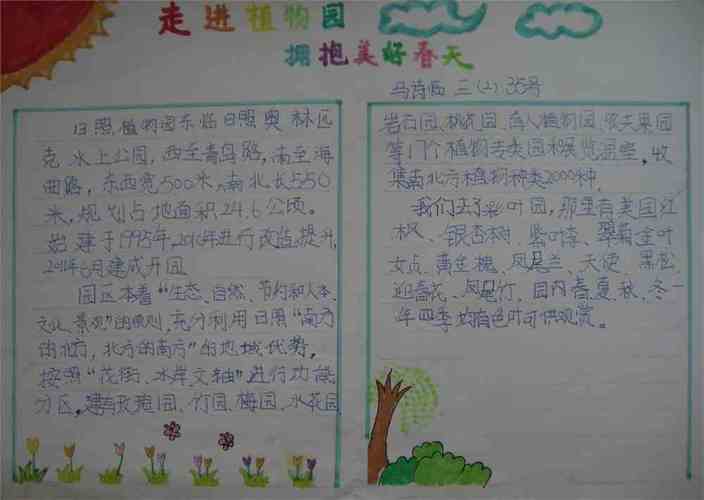 走进植物园
拥抱美好春天
马诗 三(2) 35号
日照植物园东临日照奥林匹
克水上公园,西至青岛路,南至海
曲路,东西宽500米,南北长550
米,规划占地面积24.6公顷。
始建于1995年,2010年进行改造提升,
2011年6月建成开园
园区本着“生态、自然、节约和人本、
文化、景观”的原则,充分利用日照“南方
的北方,北方的南方”的地域优势,
按照“花街、水岸、文轴”进行功能
分区,建有玫瑰园、竹园、梅园、水花园
岩石园、盲人植物园、农夫果园
等17个植物专类园和展览温室,收
集南北方植物种类2000种.
我们去了彩叶园,那里有美国红
枫、银杏树、紫叶李、金叶
女贞、黄金槐、凤尾兰、天使、黑松、
迎春花、凤尾竹,园内春、夏、秋、冬一
年四季均有色叶可供观赏。